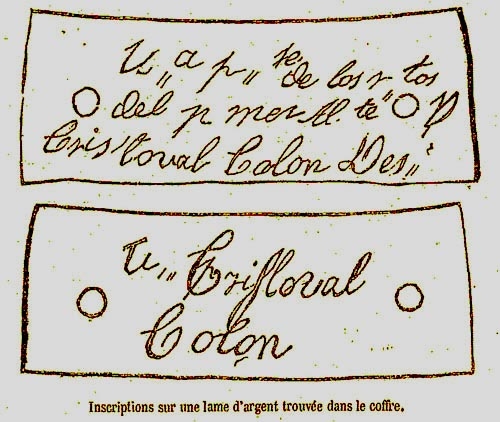 U„ a p„ te de los r tos
del p mer Al te D
Cris toval Colon Des„
U„ Cristoval
Colon
Inscriptions sur une lame d'argent trouvée dans le coffre.